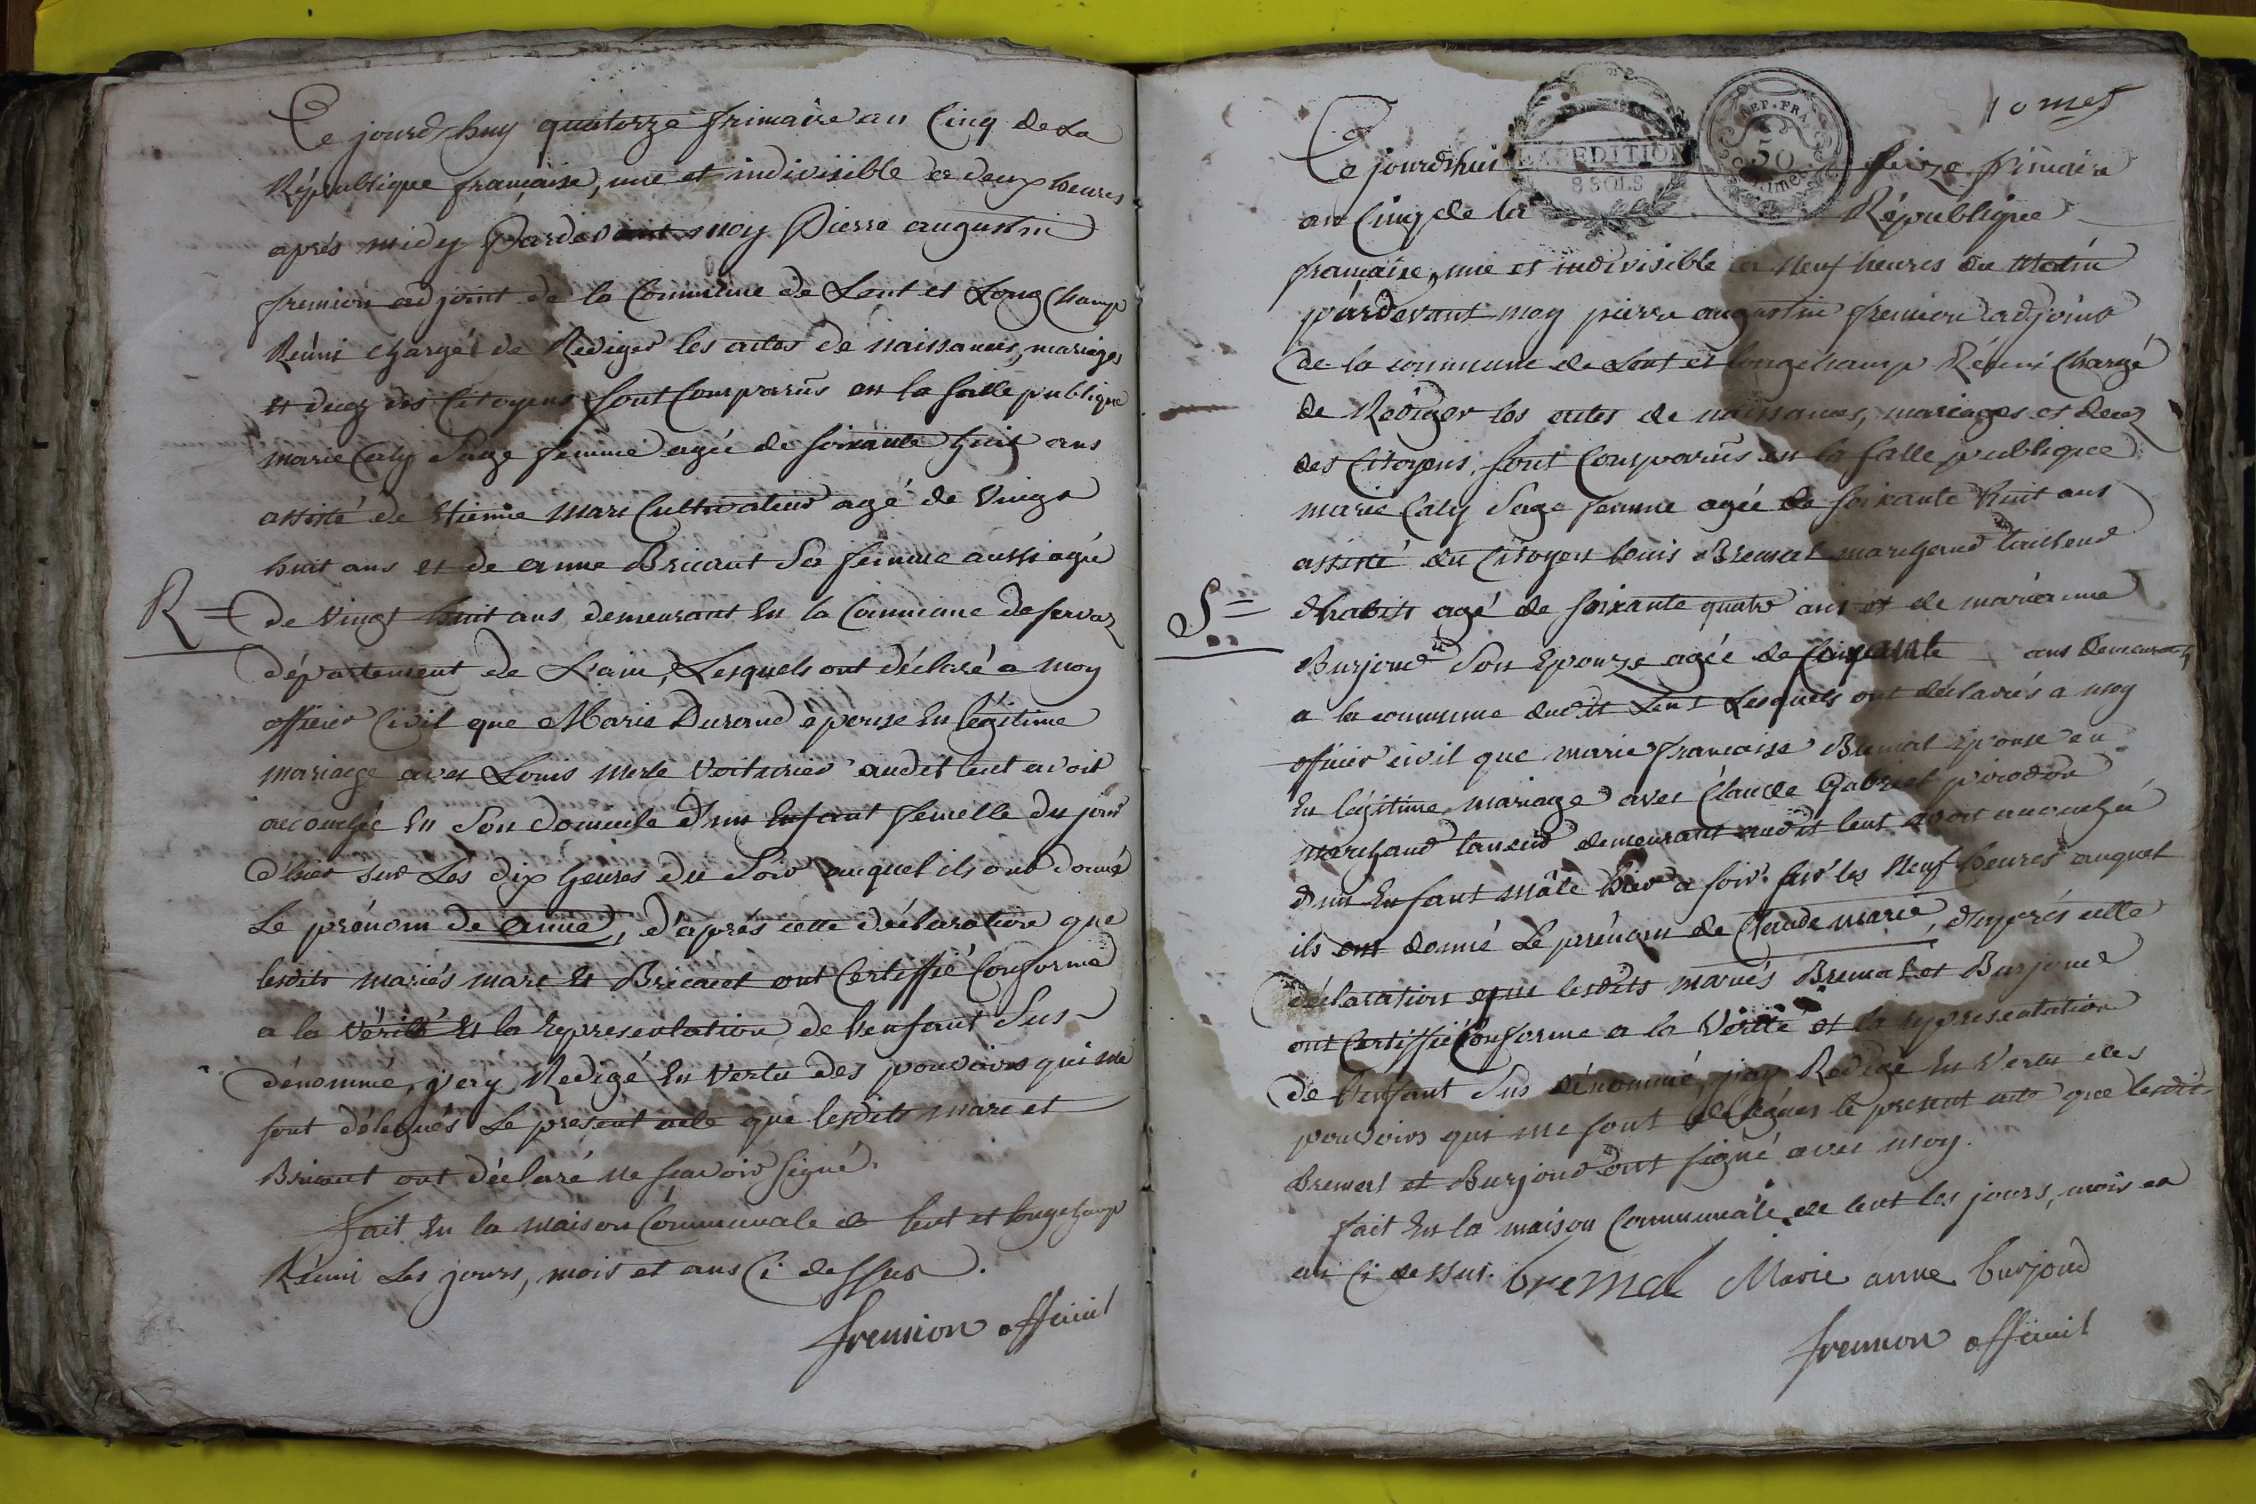 Ce jourd'huy quatorze frimaire an Cinq de La
République française, une et indivisible a deux heures
après midy Pardevant moy Pierre augustin
fremion adjoint de la Commune de Lent et Longchamp
Réuni chargé de Rediger les actes de naissances, mariages
et decez des Citoyens sont Comparus en la salle publique
marie Caly Sage femme agée de soixante huit ans
assisté de Etienne mare Cultivateur agé de Vingt
huit ans et de anne Bricaut Sa femme aussi agée
R = de Vingt huit ans demeurant En la Commune de servaz
département de L'ain, Lesquels ont déclaré a moy
officier Civil que Marie Durand épouse En légitime
mariage avec Louis merle Voiturier audit lent avoit
accouchée En Son domicile d'un Enfant femelle du jour
d'hier sur Les dix heures du Soir auquel ils ont donné
Le prénom de anne, d'après cette déclaration que
lesdits mariés mare Et Bricaut ont Certiffié Conforme
a la vérité Et la représentation de l'enfant Sus-
dénommé, j'ay Redigé En Vertu des pouvoirs qui me
sont délegués Le présent acte que lesdits mare et
Bricaut ont déclaré ne sçavoir signé.
Fait En la maison Communale de lent et longchamp
Réuni Les jours, mois et ans Ci dessus.
fremion officiel
10 mes
EXPEDITION
8 SOLS
REP. FRA.
50
Ce jourd'hui seize frimaire
an Cinq de la République
française, une et indivisible a neuf heures du Matin
pardevant moy pierre augustin fremion adjoint
de la commune de Lent et longchamp Réuni Chargé
de Rediger les actes de naissances, mariages et decez
des Citoyens, sont Comparus en la salle publique
marie Caly Sage femme agée de soixante huit ans
assisté du Citoyen louis Bremal marchand tailleur
S = d'habits agé de soixante quatre ans et de marianne
Burjoud Son Epouze agée de Cinquante ans demeurant
a la commune dudit Lent Lesquels ont déclarés a moy
officier civil que marie françoise Bremal Epouse en
En légitime mariage avec Claude Gabriel pirodon
marchand taneur demeurant audit lent avoit accouchée
d'un Enfant mâle hier a soir sur les Neuf heures auquel
ils ont donné Le prénom de Claude marie, d'après cette
déclaration que lesdits mariés Bremal et Burjoud
ont Certiffié Conforme a la Vérité et la représentation
de l'enfant Sus dénommé, j'ay Redigé En Vertu des
pouvoirs qui me sont délégués le present acte que lesdits
Bremal et Burjoud ont signé avec moy.
fait En la maison Communale de lent les jours, mois et
an Ci dessus. bremal Marie anne burjoud
fremion officiel